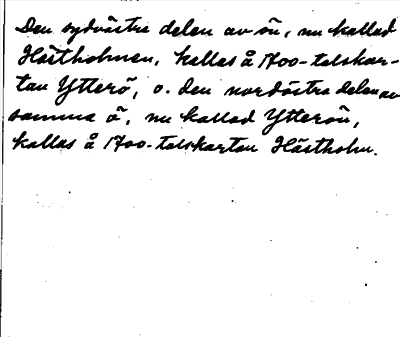 Den sydvästra delen av ön, nu kallad
Hästholmen, kallas å 1700-talskar-
tan Ytterö, o. den nordöstra delen av
samma ö, nu kallad Ytterön,
kallas å 1700-talskartan Hästholm.